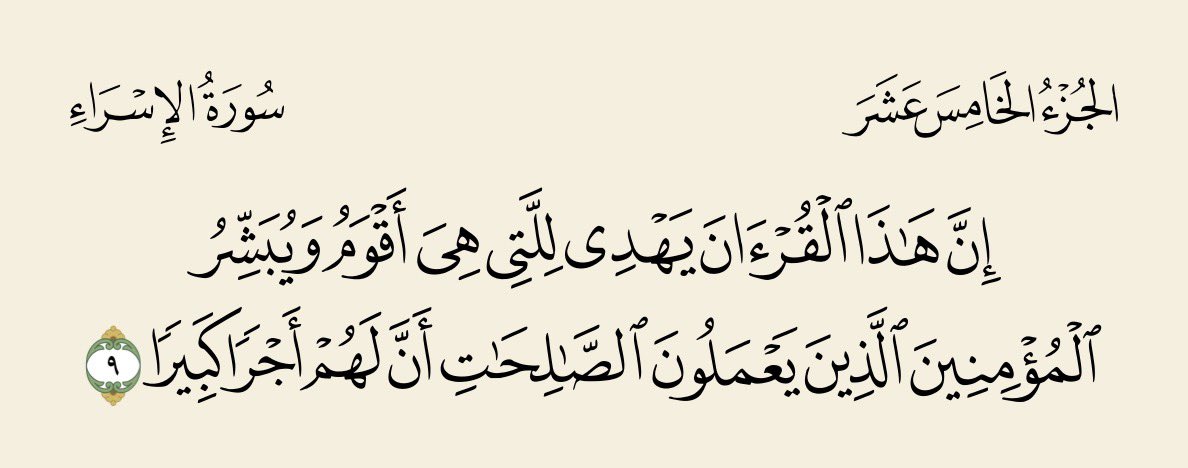 الجُزْءُ الخَامِسَ عَشَرَ سُورَةُ الإِسْرَاءِ
إِنَّ هَٰذَا ٱلْقُرْءَانَ يَهْدِى لِلَّتِى هِىَ أَقْوَمُ وَيُبَشِّرُ
ٱلْمُؤْمِنِينَ ٱلَّذِينَ يَعْمَلُونَ ٱلصَّٰلِحَٰتِ أَنَّ لَهُمْ أَجْرًا كَبِيرًا ٩